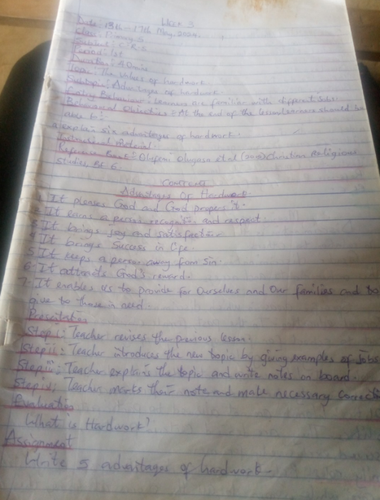 Week 3
Date: 13th - 17th May, 2024
Class: Primary 6
Subject: C.R.S
Period: 1st
Duration: 40mins
Topic: The values of hardwork
Subtopic: Advantages of hardwork
Entry Behaviour: Learners are familiar with different Jobs
Behavioural Objectives: At the end of the lesson learners should be
able to:-
explain six advantages of hardwork.
Instructional Material:
Reference Book: Olupona Olugara et al Christian Religious
Studies Bk 6
Content
Advantages Of Hardwork
1. It pleases God and God prospers it.
2. It earns a person recognition and respect.
3. It brings joy and satisfaction.
4. It brings success in life.
5. It keeps a person away from Sin.
6. It attracts God's reward.
7. It enables us to provide for Ourselves and Our families and to
give to those in need.
Presentation
Step i: Teacher revises the previous lesson.
Step ii: Teacher introduces the new topic by giving examples of Jobs
Step iii: Teacher explains the topic and write notes on board.
Step iv: Teacher marks their note and make necessary correction
Evaluation
What is Hardwork?
Assignment
Write 5 advantages of hardwork.